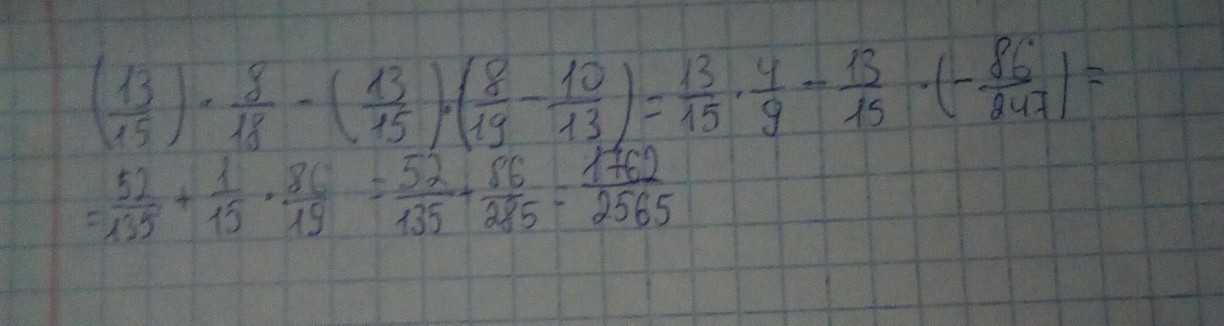 (13/15) · 8/18 - (13/15) · (8/19 - 10/13) = 13/15 · 4/9 - 13/15 · (- 86/247) =
= 52/135 + 1/15 · 86/19 = 52/135 + 86/285 = 1762/2565